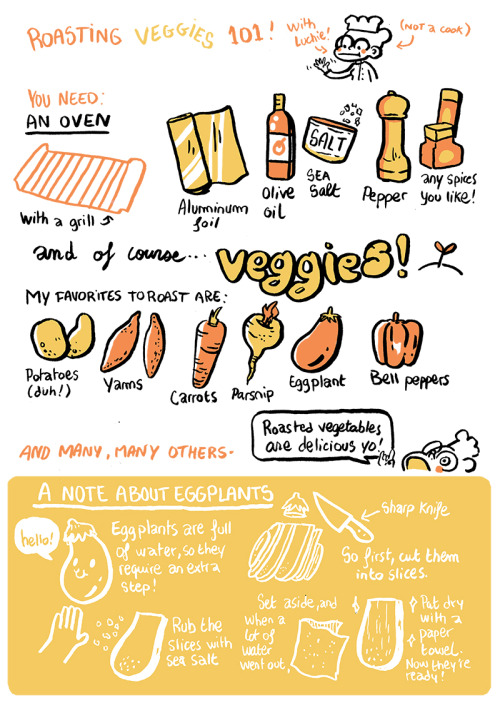 ROASTING VEGGIES 101!
With Luchie!
(NOT a cook)
YOU NEED:
AN OVEN
With a grill
Aluminum
foil
Olive
oil
SALT
SEA
Salt
Pepper
any spices
you like!
and of course...
veggies!
MY FAVORITES TO ROAST ARE:
Potatoes
(duh!)
Yams
Carrots
Parsnip
Eggplant
Bell peppers
AND MANY, MANY OTHERS-
Roasted vegetables
are delicious yo!
A NOTE ABOUT EGGPLANTS
hello!
Eggplants are full
of water, so they
require an extra
step!
Sharp Knife
So first, cut them
into slices.
Rub the
slices with
sea salt
Set aside, and
when a
lot of
water
went out,
Pat dry
with a
paper
towel.
Now they're
ready!